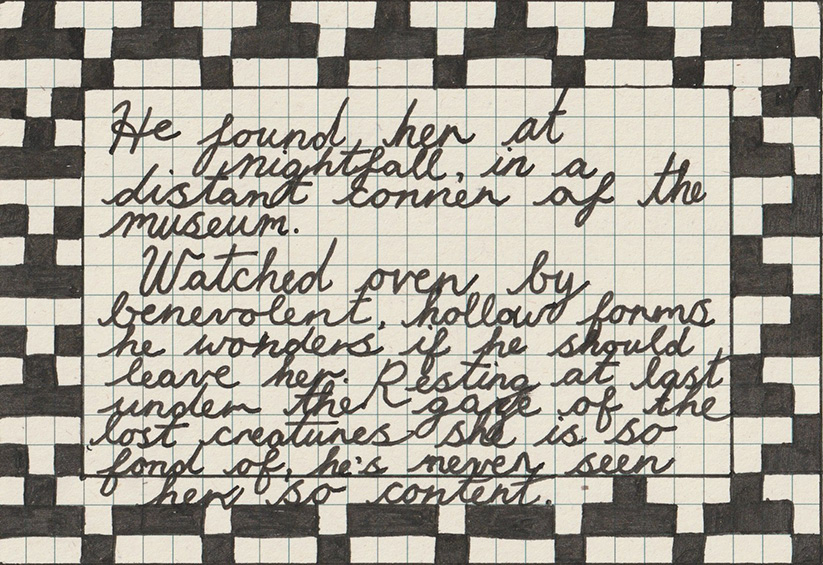 He found her at
nightfall, in a
distant corner of the
museum.
Watched over by
benevolent, hollow forms
he wonders if he should
leave her. Resting at last
under the gaze of the
lost creatures she is so
fond of, he's never seen
her so content.